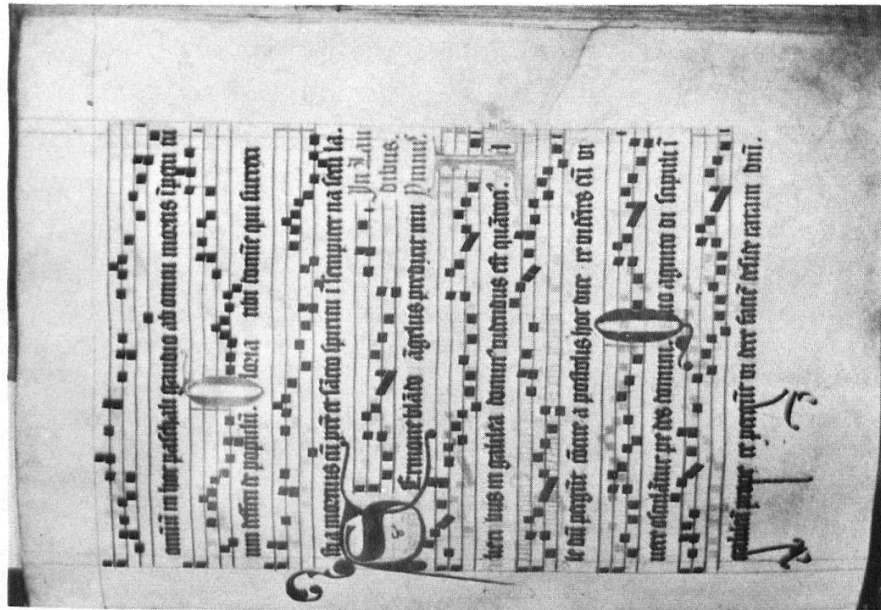 omniũ in hoc paschali gaudio ab omni mortis ĩpetu tu
um defen de populũ. Gloria tibi domine qui surrexi
sti a mortuis cũ pr̃e et sãcto spiritu ĩ sempiter na secu la.
In Lau
dibus
Ymnus
Sermone blãdo ãgelus predixit mu
lieri bus in galilea dominus videndus est quãtocius. I
lle dũ pergũt cõcite a postolis hoc dicere videntes eũ vi
vere osculãtur pe des domini. Quo agnito di scipuli ĩ
galileã prope re pergũt vi dere faciẽ desideratam dñi.